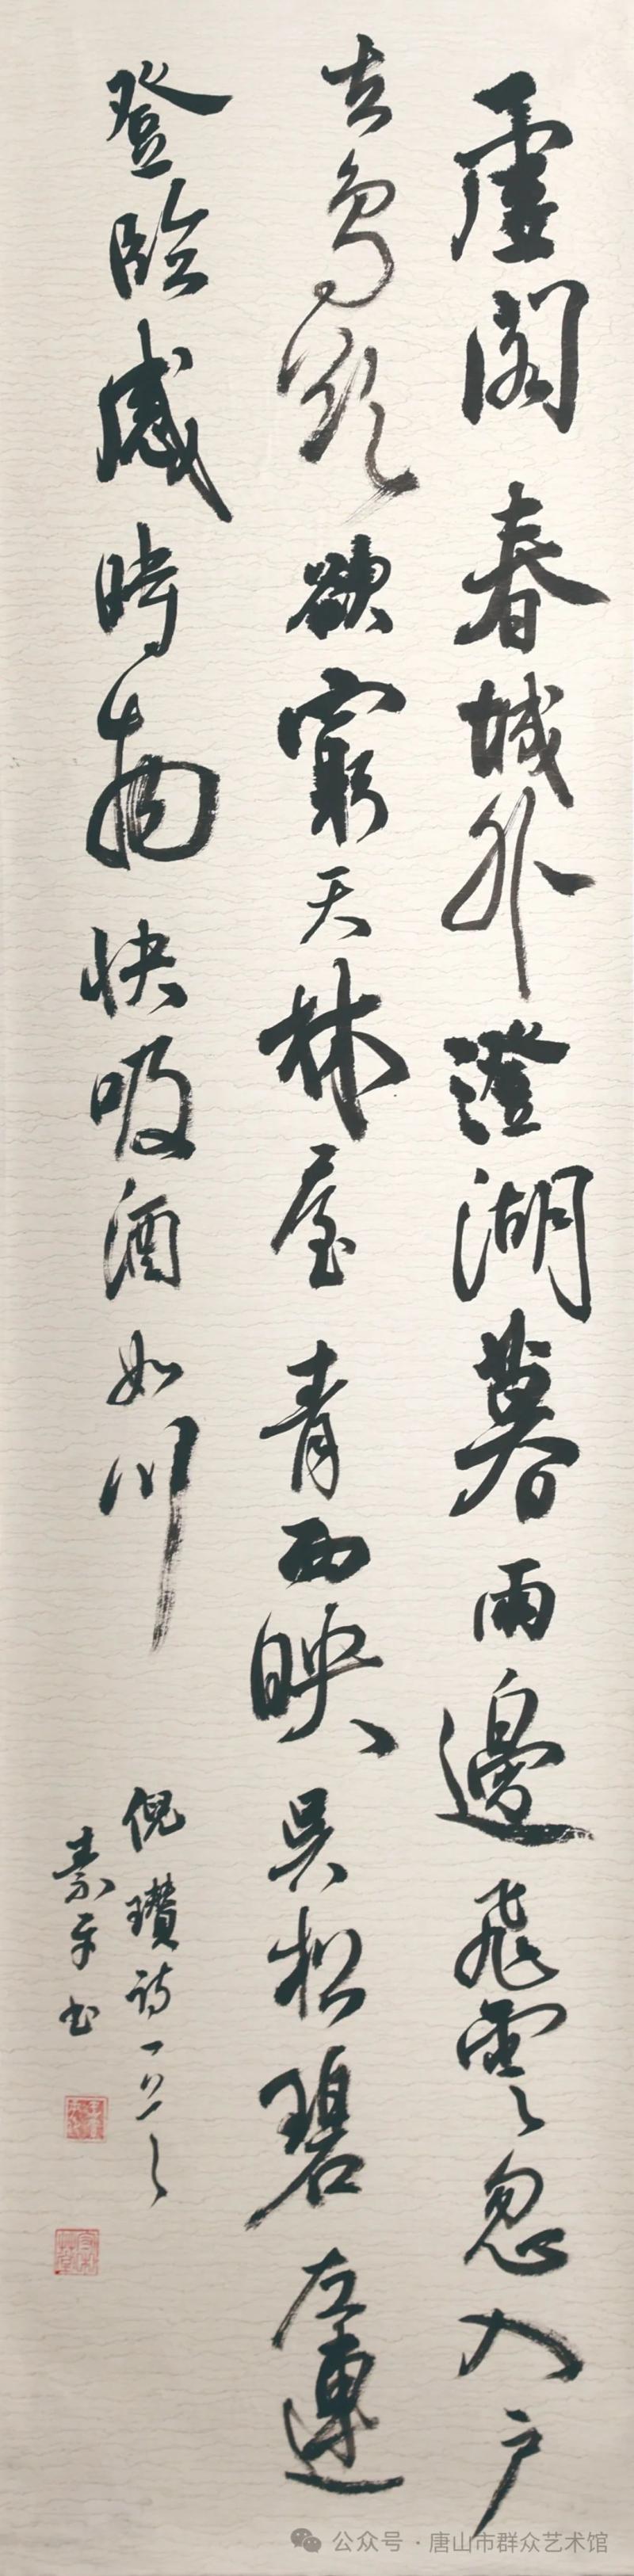 虛閣春城外澄湖暮雨邊飛雲忽入戶
去鳥欲欲窮天林屋青西映吳松碧左連
登臨感時物快吸酒如川
倪瓚詩一首
素平书
公众号·唐山市群众艺术馆